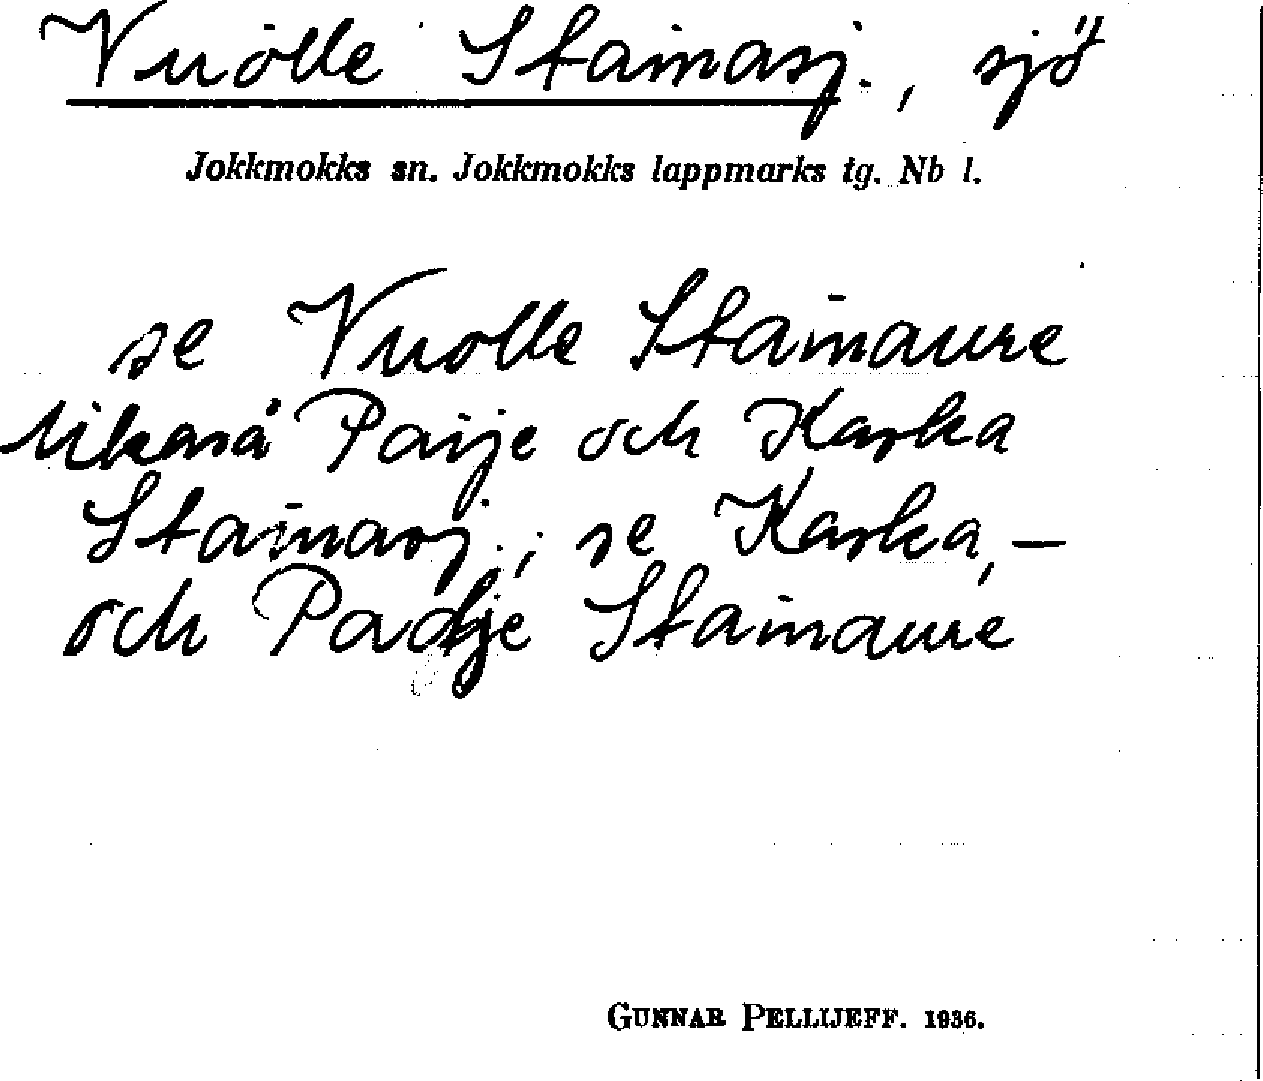 Vuolle Stainasj., sjö
Jokkmokks sn. Jokkmokks lappmarks tg. Nb l.
se Vuolle Stainaure
likaså Paije och Karska
Stainasj.; se Karska, –
och Padje Stainaure
GUNNAR PELLIJEFF. 1936.